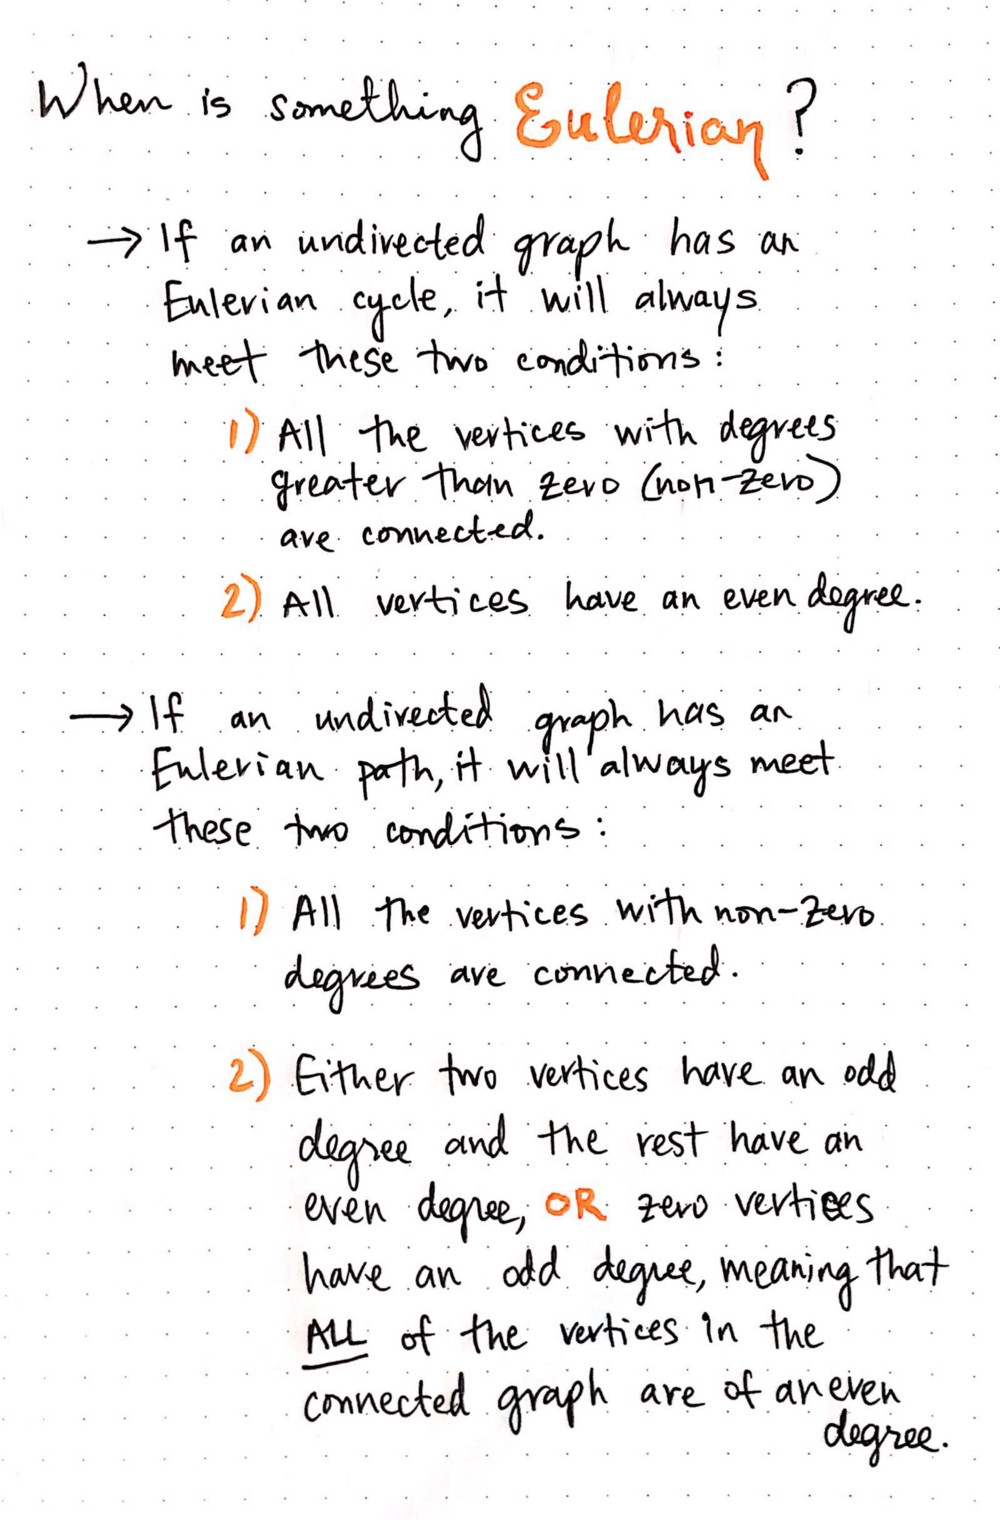 When is something Eulerian?
→ If an undirected graph has an
Eulerian cycle, it will always
meet these two conditions:
1) All the vertices with degrees
greater than zero (non-zero)
are connected.
2) All vertices have an even degree.
→ If an undirected graph has an
Eulerian path, it will always meet
these two conditions:
1) All the vertices with non-zero
degrees are connected.
2) Either two vertices have an odd
degree and the rest have an
even degree, OR zero vertices
have an odd degree, meaning that
ALL of the vertices in the
connected graph are of an even
degree.